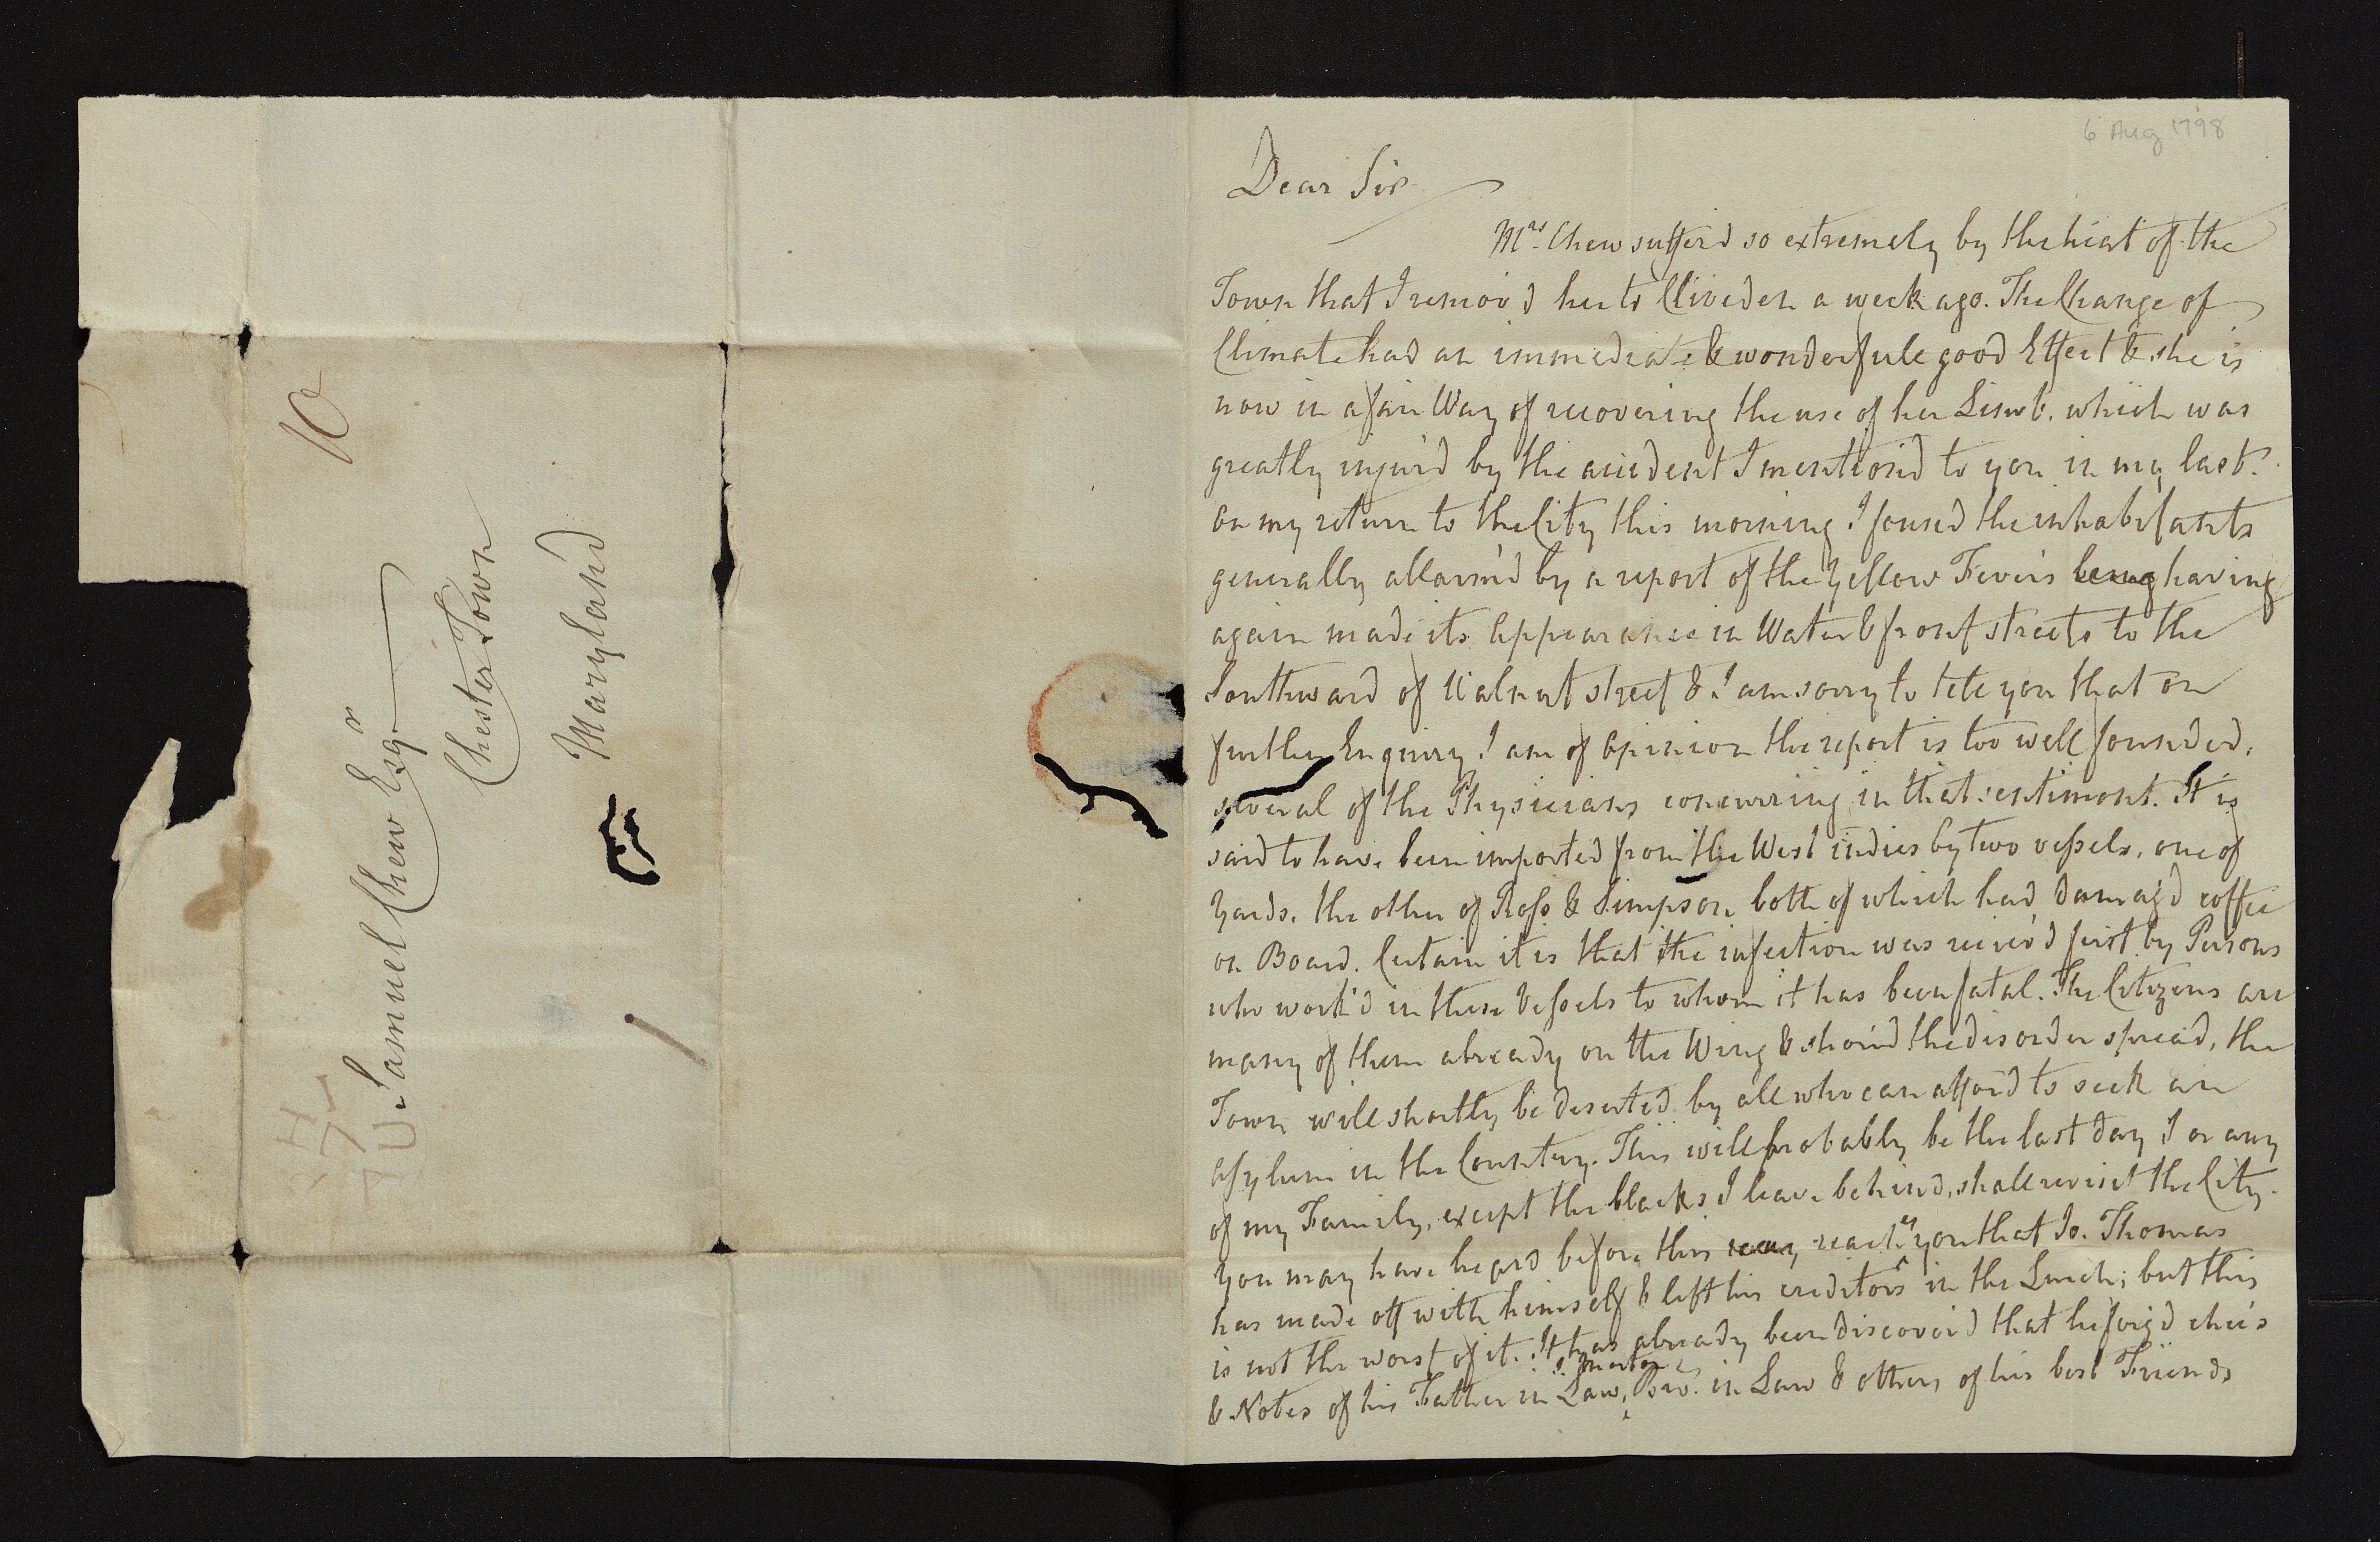 10
Samuel Chew Esqr.
Chester Town
Maryland
6 Aug 1798
Dear Sir
Mrs. Chew suffer'd so extremely by the heat of the
Town that I remov'd her to Cliveden a week ago. The Change of
Climate had an immediate & wonderfull good Effect & she is
now in a fair Way of recovering the use of her Limb. which was
greatly injur'd by the accident I mention'd to you in my last.
On my return to the City this morning I found the inhabitants
generally allarm'd by a report of the Yellow Fever's being having
again made its appearance in Water & front streets to the
Southward of Walnut street & I am sorry to tell you that on
further Enquiry I am of Opinion the report is too well founded,
several of the Physicians concurring in that sentiment. It is
said to have been imported from the West indies by two vessels, one of
Yards, the other of Ross & Simpson both of which had damag'd coffee
on Board. Certain it is that the infection was receiv'd first by Persons
who work'd in these Vessels to whom it has been fatal. The Citizens are
many of them already on the Wing & shou'd the disorder spread, the
Town will shortly be deserted by all who can afford to seek an
asylum in the Country. This will probably be the last day I or any
of my Family, except the blacks I leave behind, shall revisit the City.
You may have heard before this may reaches you that Jo. Thomas
has made off with himself & left his creditors in the Lurch; but this
is not the worst of it. It has already been discover'd that he forg'd checs
& Notes of his Father in Law, Bro. in Law & others of his best Friends